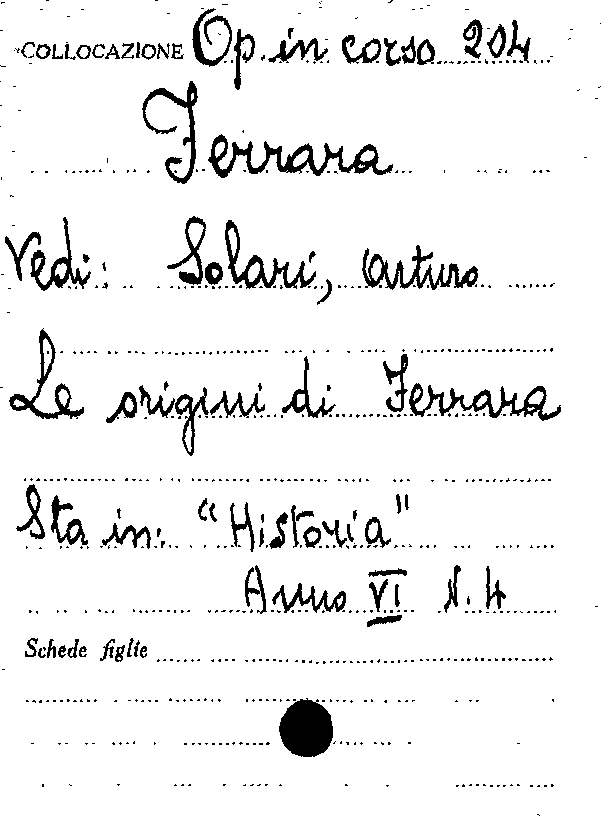 COLLOCAZIONE Op. in corso 204
Ferrara
Vedi: Solari, Arturo
Le origini di Ferrara
Sta in: "Historia"
Anno VI N. 4
Schede figlie